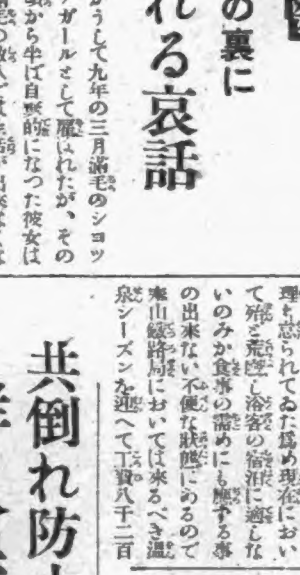 の裏に
れる哀話
かうして九年の三月滿毛のショッ
ガールとして雇はれたが、その
から半ば自棄的になつた彼女は
理も忘られてゐた爲め現在におい
て殆ど荒廢し浴客の宿泊に適しな
いのみか食事の需めにも應ずる事
の出來ない不便な狀態にあるので
山鐵路局においては來るべき溫
泉シーズンを迎へて工費八千二百
共倒れ防